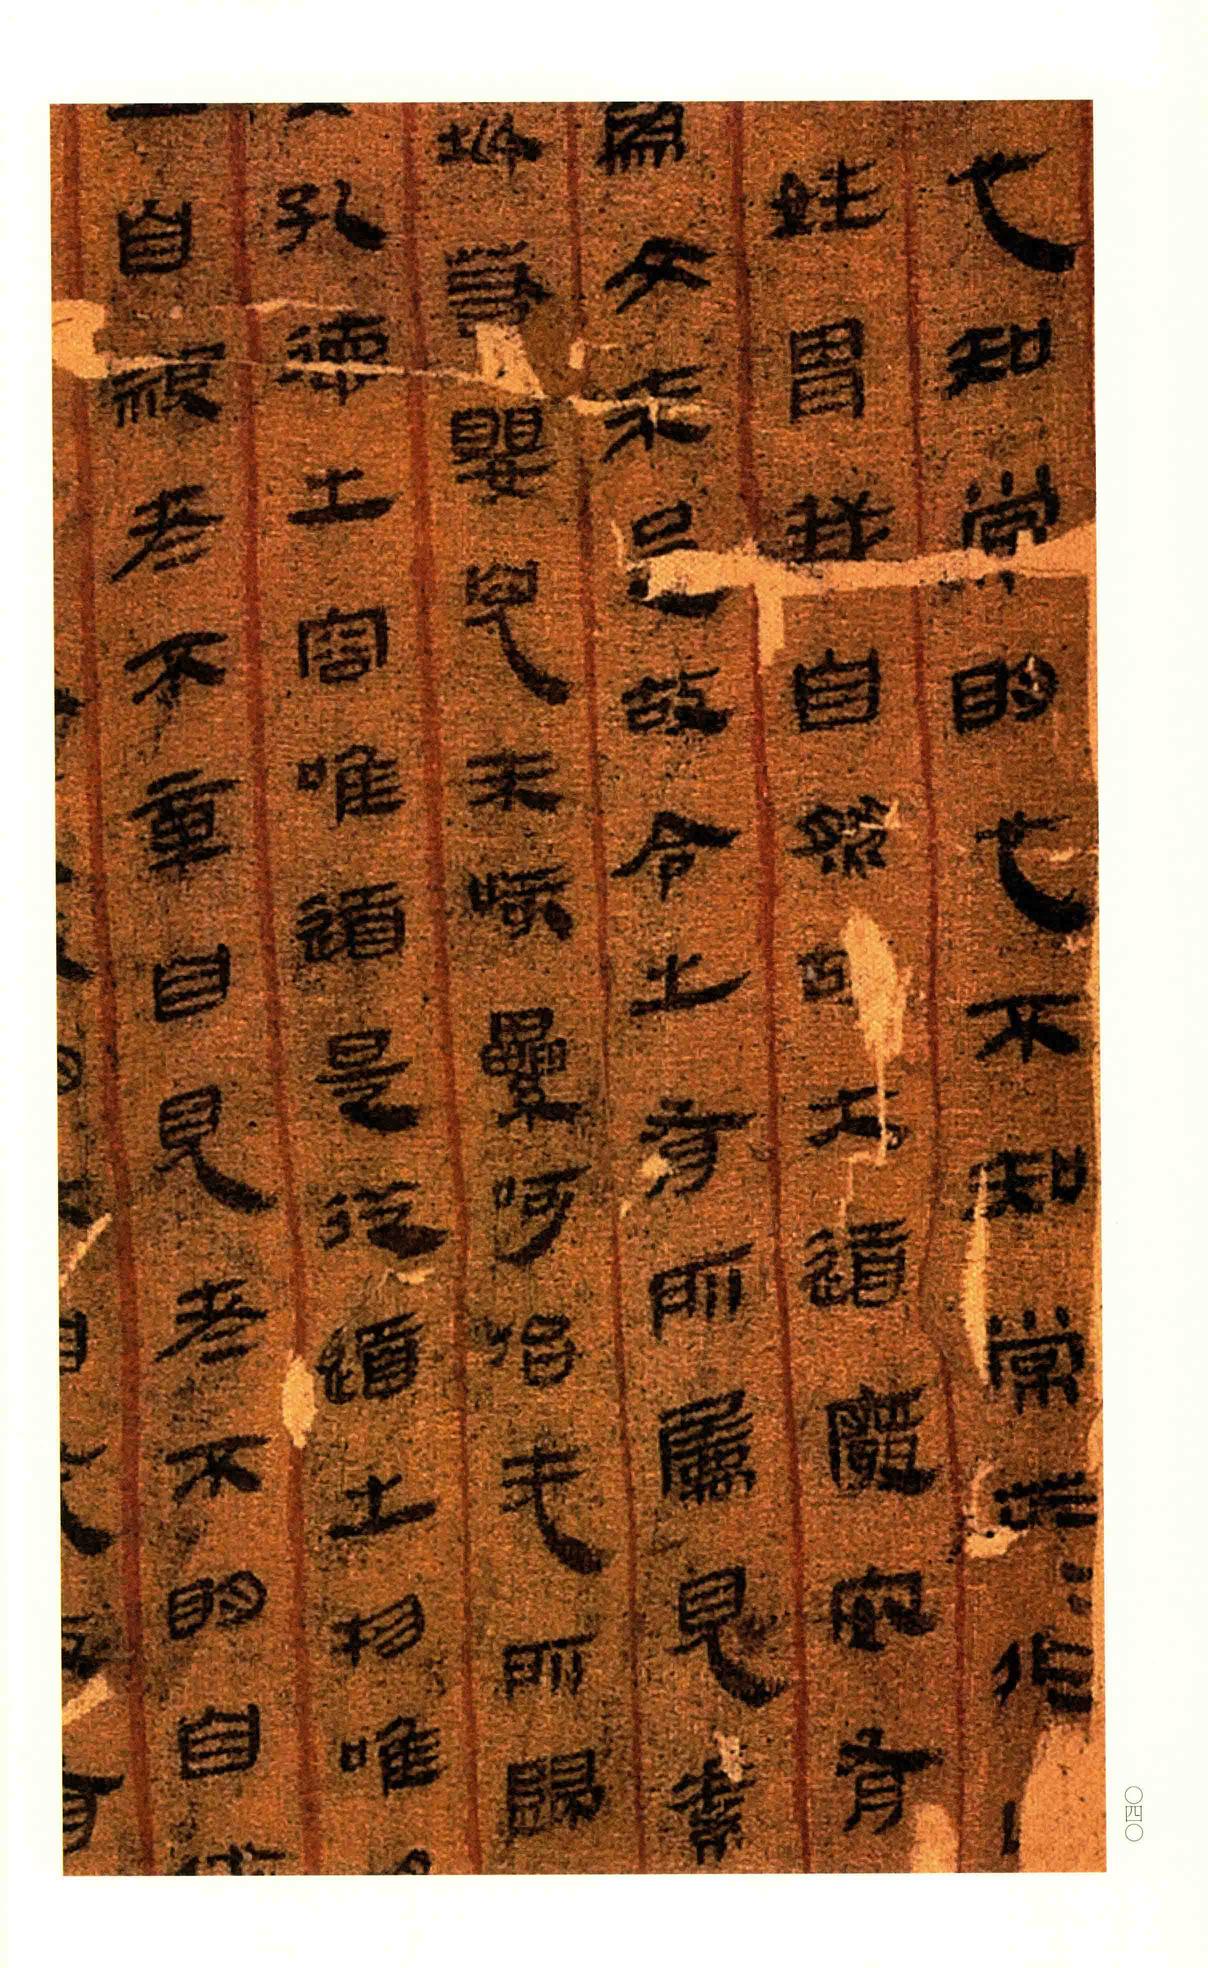 也知常明也不知常芒=作
姓胃我自然故大道廢安有
為文未足故令之有所屬見素
垗若嬰兒未咳纍呵佁无所歸
孔德之容唯道是從道之物唯
自視者不章自見者不明自
〇四〇